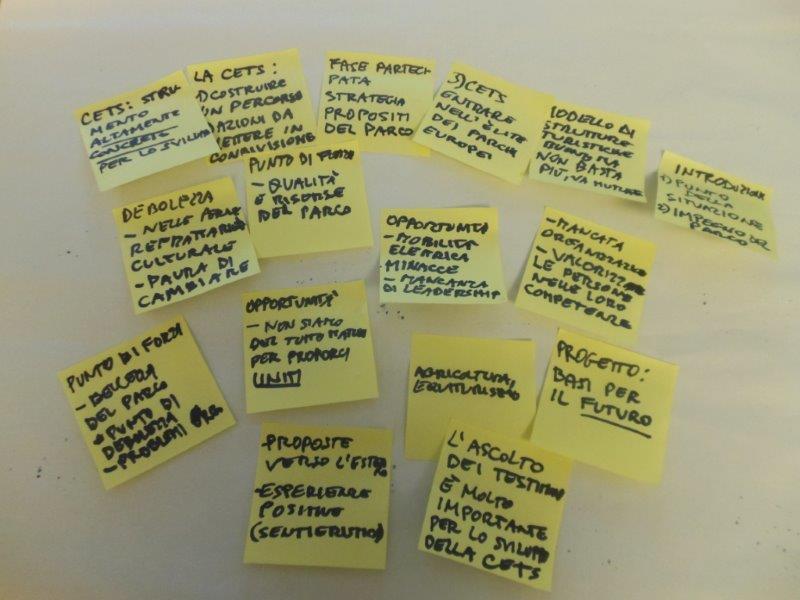 CETS: STRU
MENTO
ALTAMENTE
CONCRETO
PER LO SVILUPP
LA CETS:
1) COSTRUIRE
UN PERCORSO
AZIONI DA
METTERE IN
CONDIVISIONE
FASE PARTECI
PATA
STRATEGIA
PROPOSITI
DEL PARCO
3) CETS
ENTRARE
NELL'ÉLITE
DEI PARCHI
EUROPEI
MODELLO DI
STRUTTURE
TURISTICHE
NON BASTA
PIÙ, VA
INTRODUZIONE
1) PUNTO
DELLA
SITUAZIONE
2) IMPEGNO DEL
PARCO
DEBOLEZZA
- NELLE AREE
CULTURALE
- PAURA DI
CAMBIARE
PUNTO DI FORZA
- QUALITÀ
E RISORSE
DEL PARCO
OPPORTUNITÀ
- MOBILITÀ
ELETTRICA
MINACCE
- MANCANZA
DI LEADERSHIP
- MANCATA
ORGANIZZAZIONE
- VALORIZZARE
LE PERSONE
NELLE LORO
COMPETENZE
PUNTO DI FORZA
- BELLEZZA
DEL PARCO
* PUNTO DI
DEBOLEZZA
- PROBLEMI
OPPORTUNITÀ
- NON SIAMO
DEL TUTTO
PER PROPORCI
UNITI
AGRICOLTURA,
PROGETTO:
BASI PER
IL FUTURO
- PROPOSTE
VERSO L'ESTERO
- ESPERIENZE
POSITIVE
(SENTIERISTICO)
L'ASCOLTO
DEI
È MOLTO
IMPORTANTE
PER LO SVILUPPO
DELLA CETS